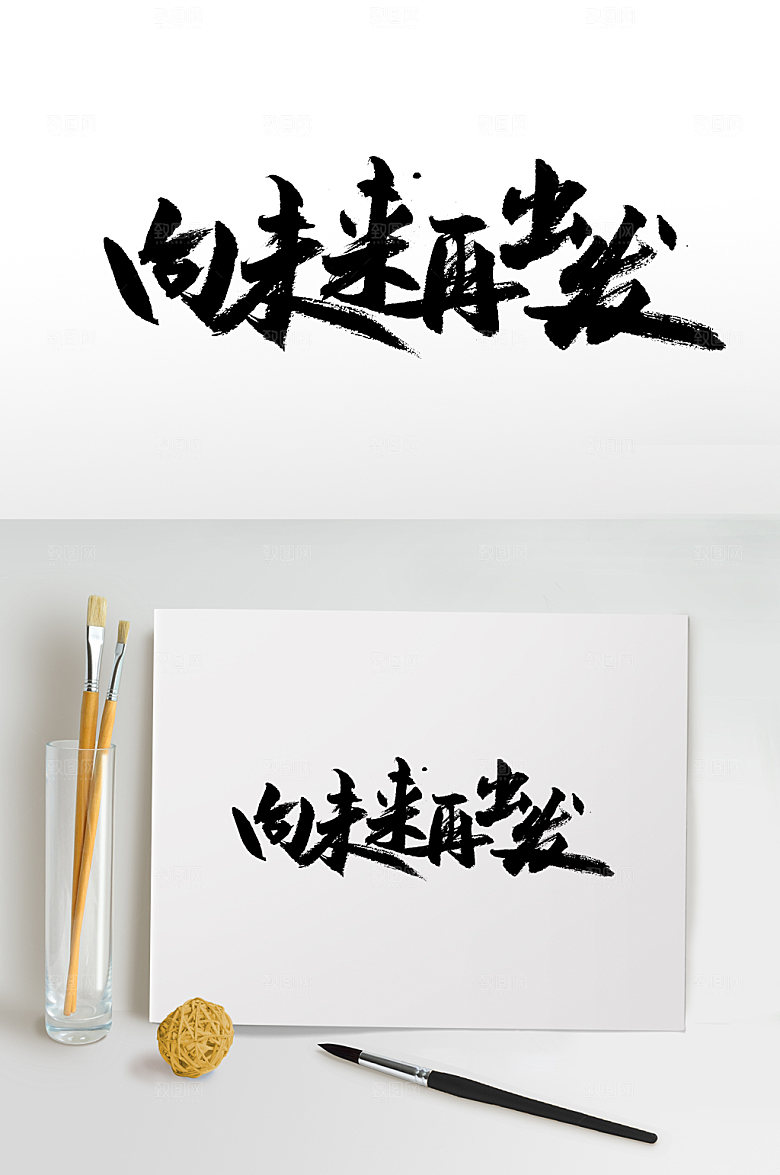 向未来再出发
向未来再出发